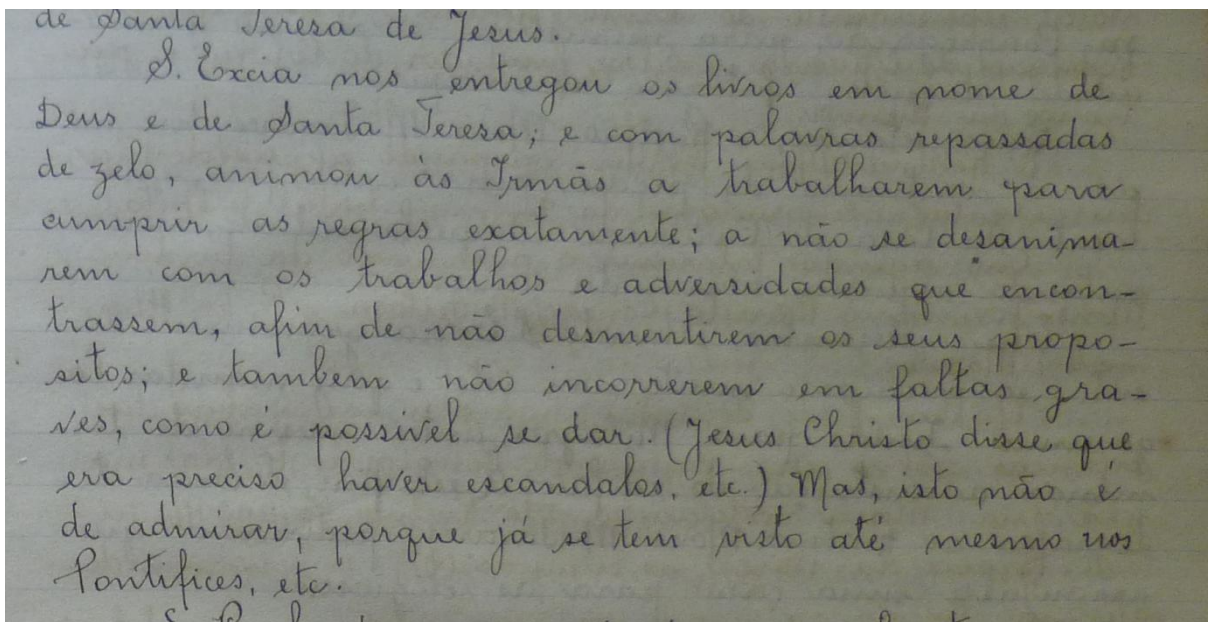 de Santa Teresa de Jesus.
S. Excia nos entregou os livros em nome de
Deus e de Santa Teresa; e com palavras repassadas
de zelo, animou às Irmãs a trabalharem para
cumprir as regras exatamente; a não se desanima-
rem com os trabalhos e adversidades que encon-
trassem, afim de não desmentirem os seus propo-
sitos; e tambem não incorrerem em faltas gra-
ves, como é possivel se dar. (Jesus Christo disse que
era preciso haver escandalos, etc.) Mas, isto não é
de admirar, porque já se tem visto até mesmo nos
Pontifices, etc.